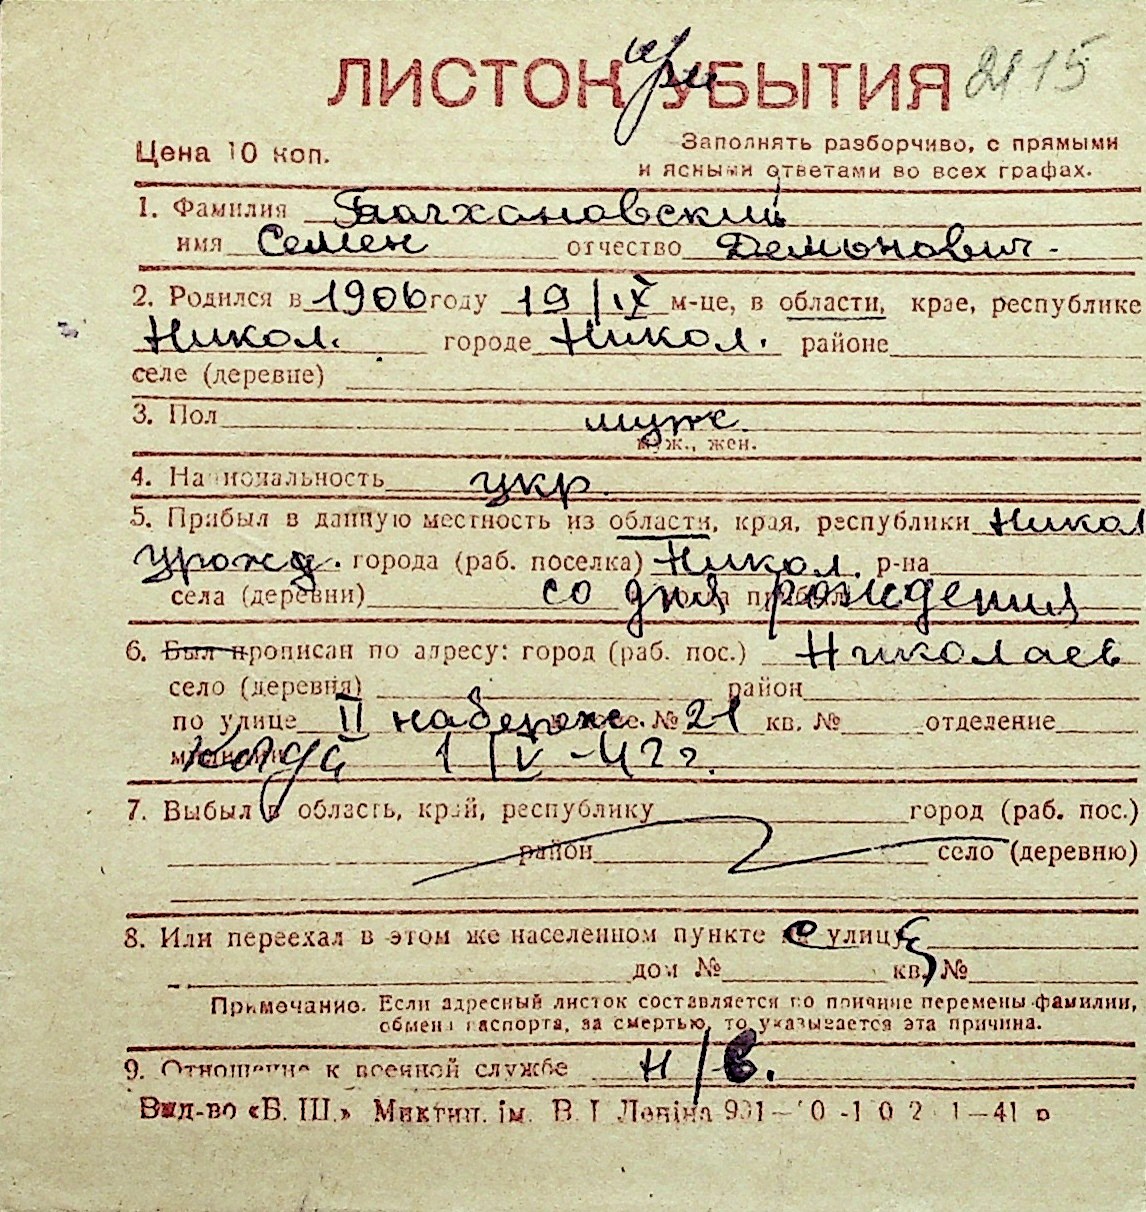 ЛИСТОК при УБЫТИЯ 2115
Цена 10 коп. Заполнять разборчиво, с прямыми
и ясными ответами во всех графах.
1. Фамилия
имя Семен отчество Демьнович.
2. Родился в 1906 году 19/IX м-це, в области, крае, республике
Никол. городе Никол. районе
селе (деревне)
3. Пол муж.
муж., жен.
4. Национальность укр.
5. Прибыл в данную местность из области, края, республики Никол
урожд. города (раб. поселка) Никол. р-на
села (деревни) со дня рождения
6. Был прописан по адресу: город (раб. пос.) Николаев
село (деревня) район
по улице II набережн. № 21 кв. № отделение
милиции Когда 1 IV-42 г.
7. Выбыл в область, край, республику город (раб. пос.)
район село (деревню)
8. Или переехал в этом же населенном пункте с улицы
дом № кв. №
Примечание. Если адресный листок составляется по причине перемены фамилии,
обмена паспорта, за смертью, то указывается эта причина.
9. Отношение к военной службе н/в.
Вид-во «Б. Ш.» Миктип. ім. В. І Леніна